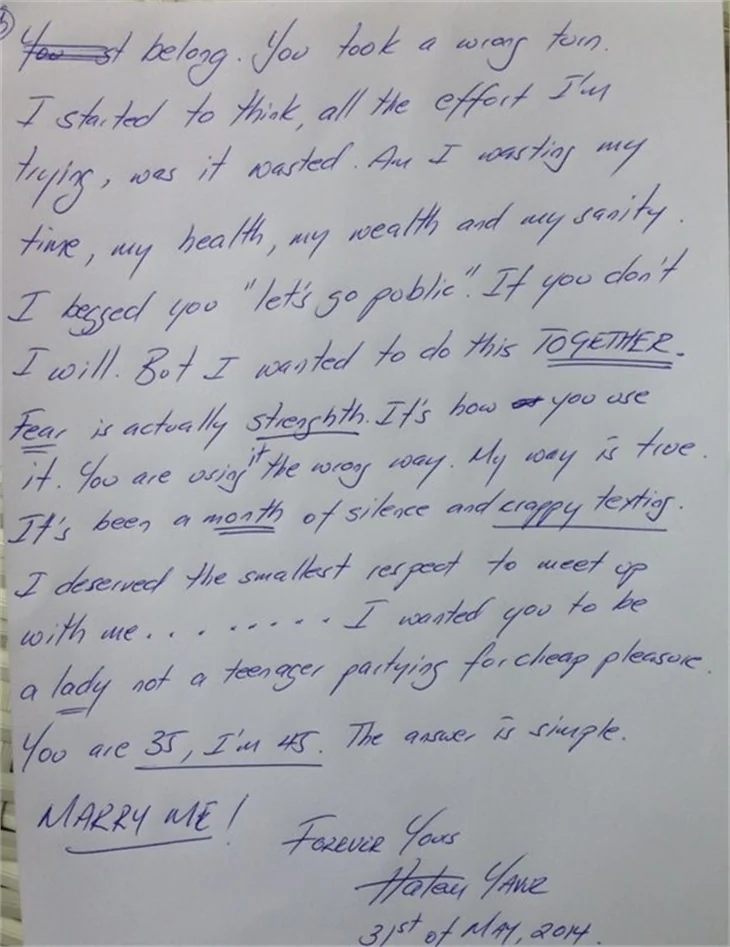 belong. You took a wrong turn.
I started to think, all the effort I'm
trying, was it wasted. Am I wasting my
time, my health, my wealth and my sanity.
I begged you "let's go public". If you don't
I will. But I wanted to do this TOGETHER.
Fear is actually strenghth. It's how you use
it. You are using it the wrong way. My way is true.
It's been a month of silence and crappy texting.
I deserved the smallest respect to meet up
with me. . . . . . . . . I wanted you to be
a lady not a teenager partying for cheap pleasure.
You are 35, I'm 45. The answer is simple.
MARRY ME!
Forever Yours
31st of MAY, 2014.